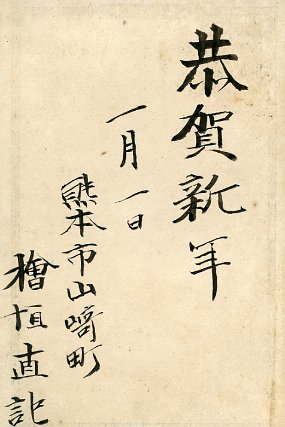 恭賀新年
一月一日
熊本市山﨑町
檜垣直記